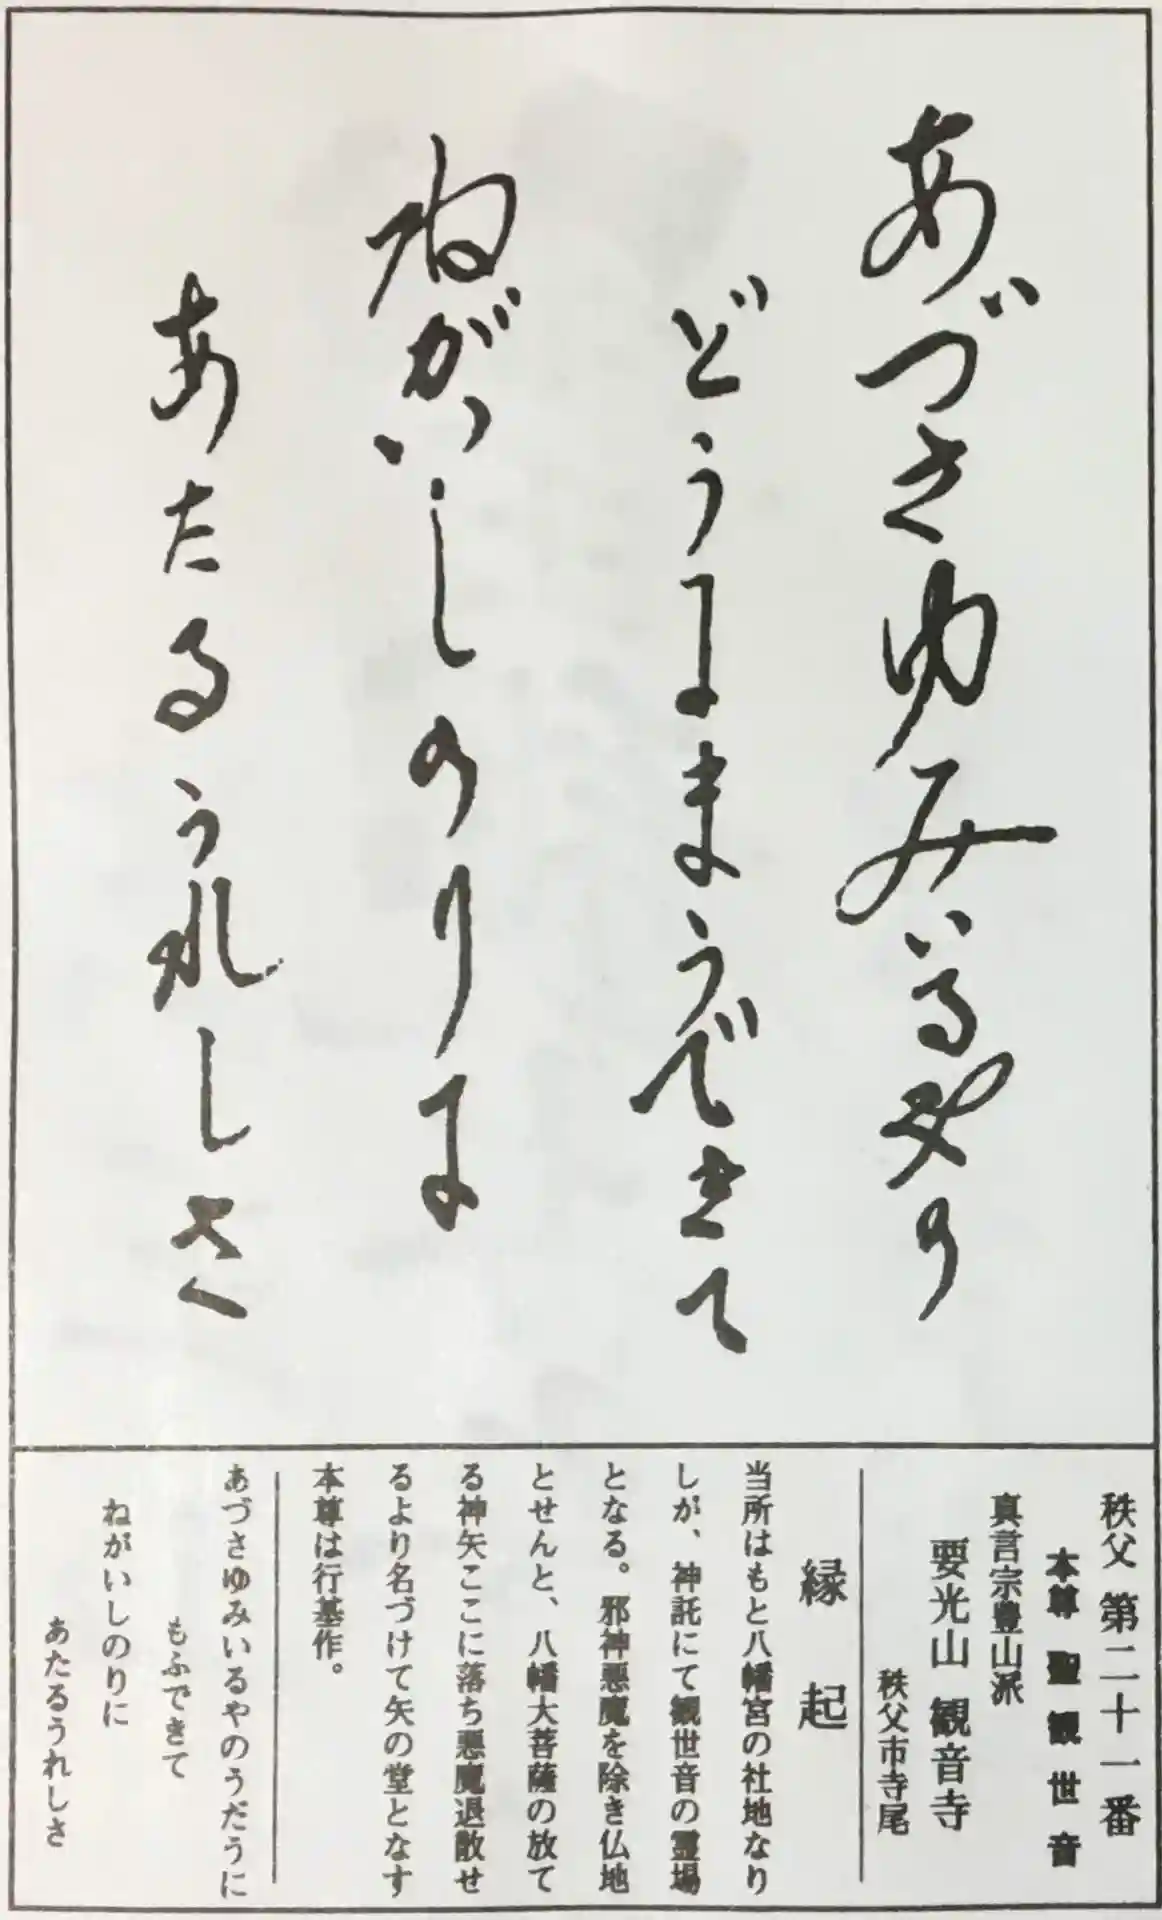 あづさゆみいるやの
どうにまうできて
ねがいしのりに
あたるうれしさ
秩父 第二十一番
本尊 聖観世音
真言宗豊山派
要光山 観音寺
秩父市寺尾
縁起
当所はもと八幡宮の社地なり
しが、神託にて観世音の霊場
となる。邪神悪魔を除き仏地
とせんと、八幡大菩薩の放て
る神矢ここに落ち悪魔退散せ
るより名づけて矢の堂となす
本尊は行基作。
あづさゆみいるやのうだうに
もふできて
ねがいしのりに
あたるうれしさ